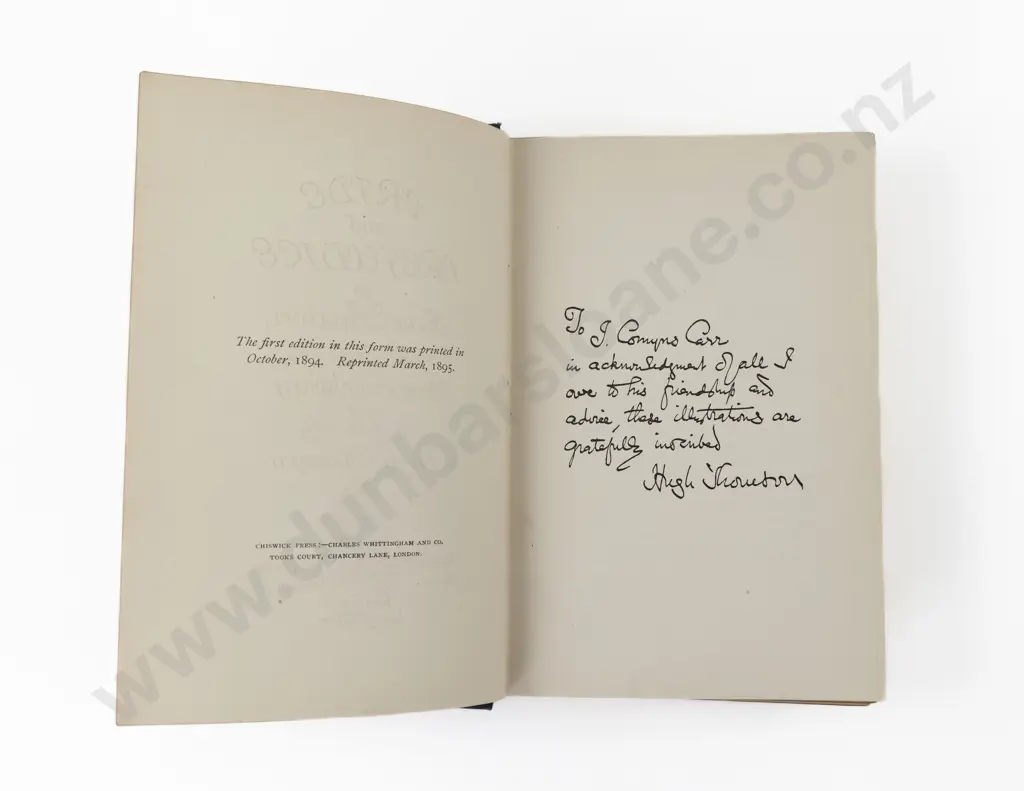 PRIDE
and
PREJUDICE
The first edition in this form was printed in
October, 1894. Reprinted March, 1895.
CHISWICK PRESS:—CHARLES WHITTINGHAM AND CO.
TOOKS COURT, CHANCERY LANE, LONDON.
To J. Comyns Carr
in acknowledgment of all I
owe to his friendship and
advice, these illustrations are
gratefully inscribed
Hugh Thomson
www.dunbarsloane.co.nz